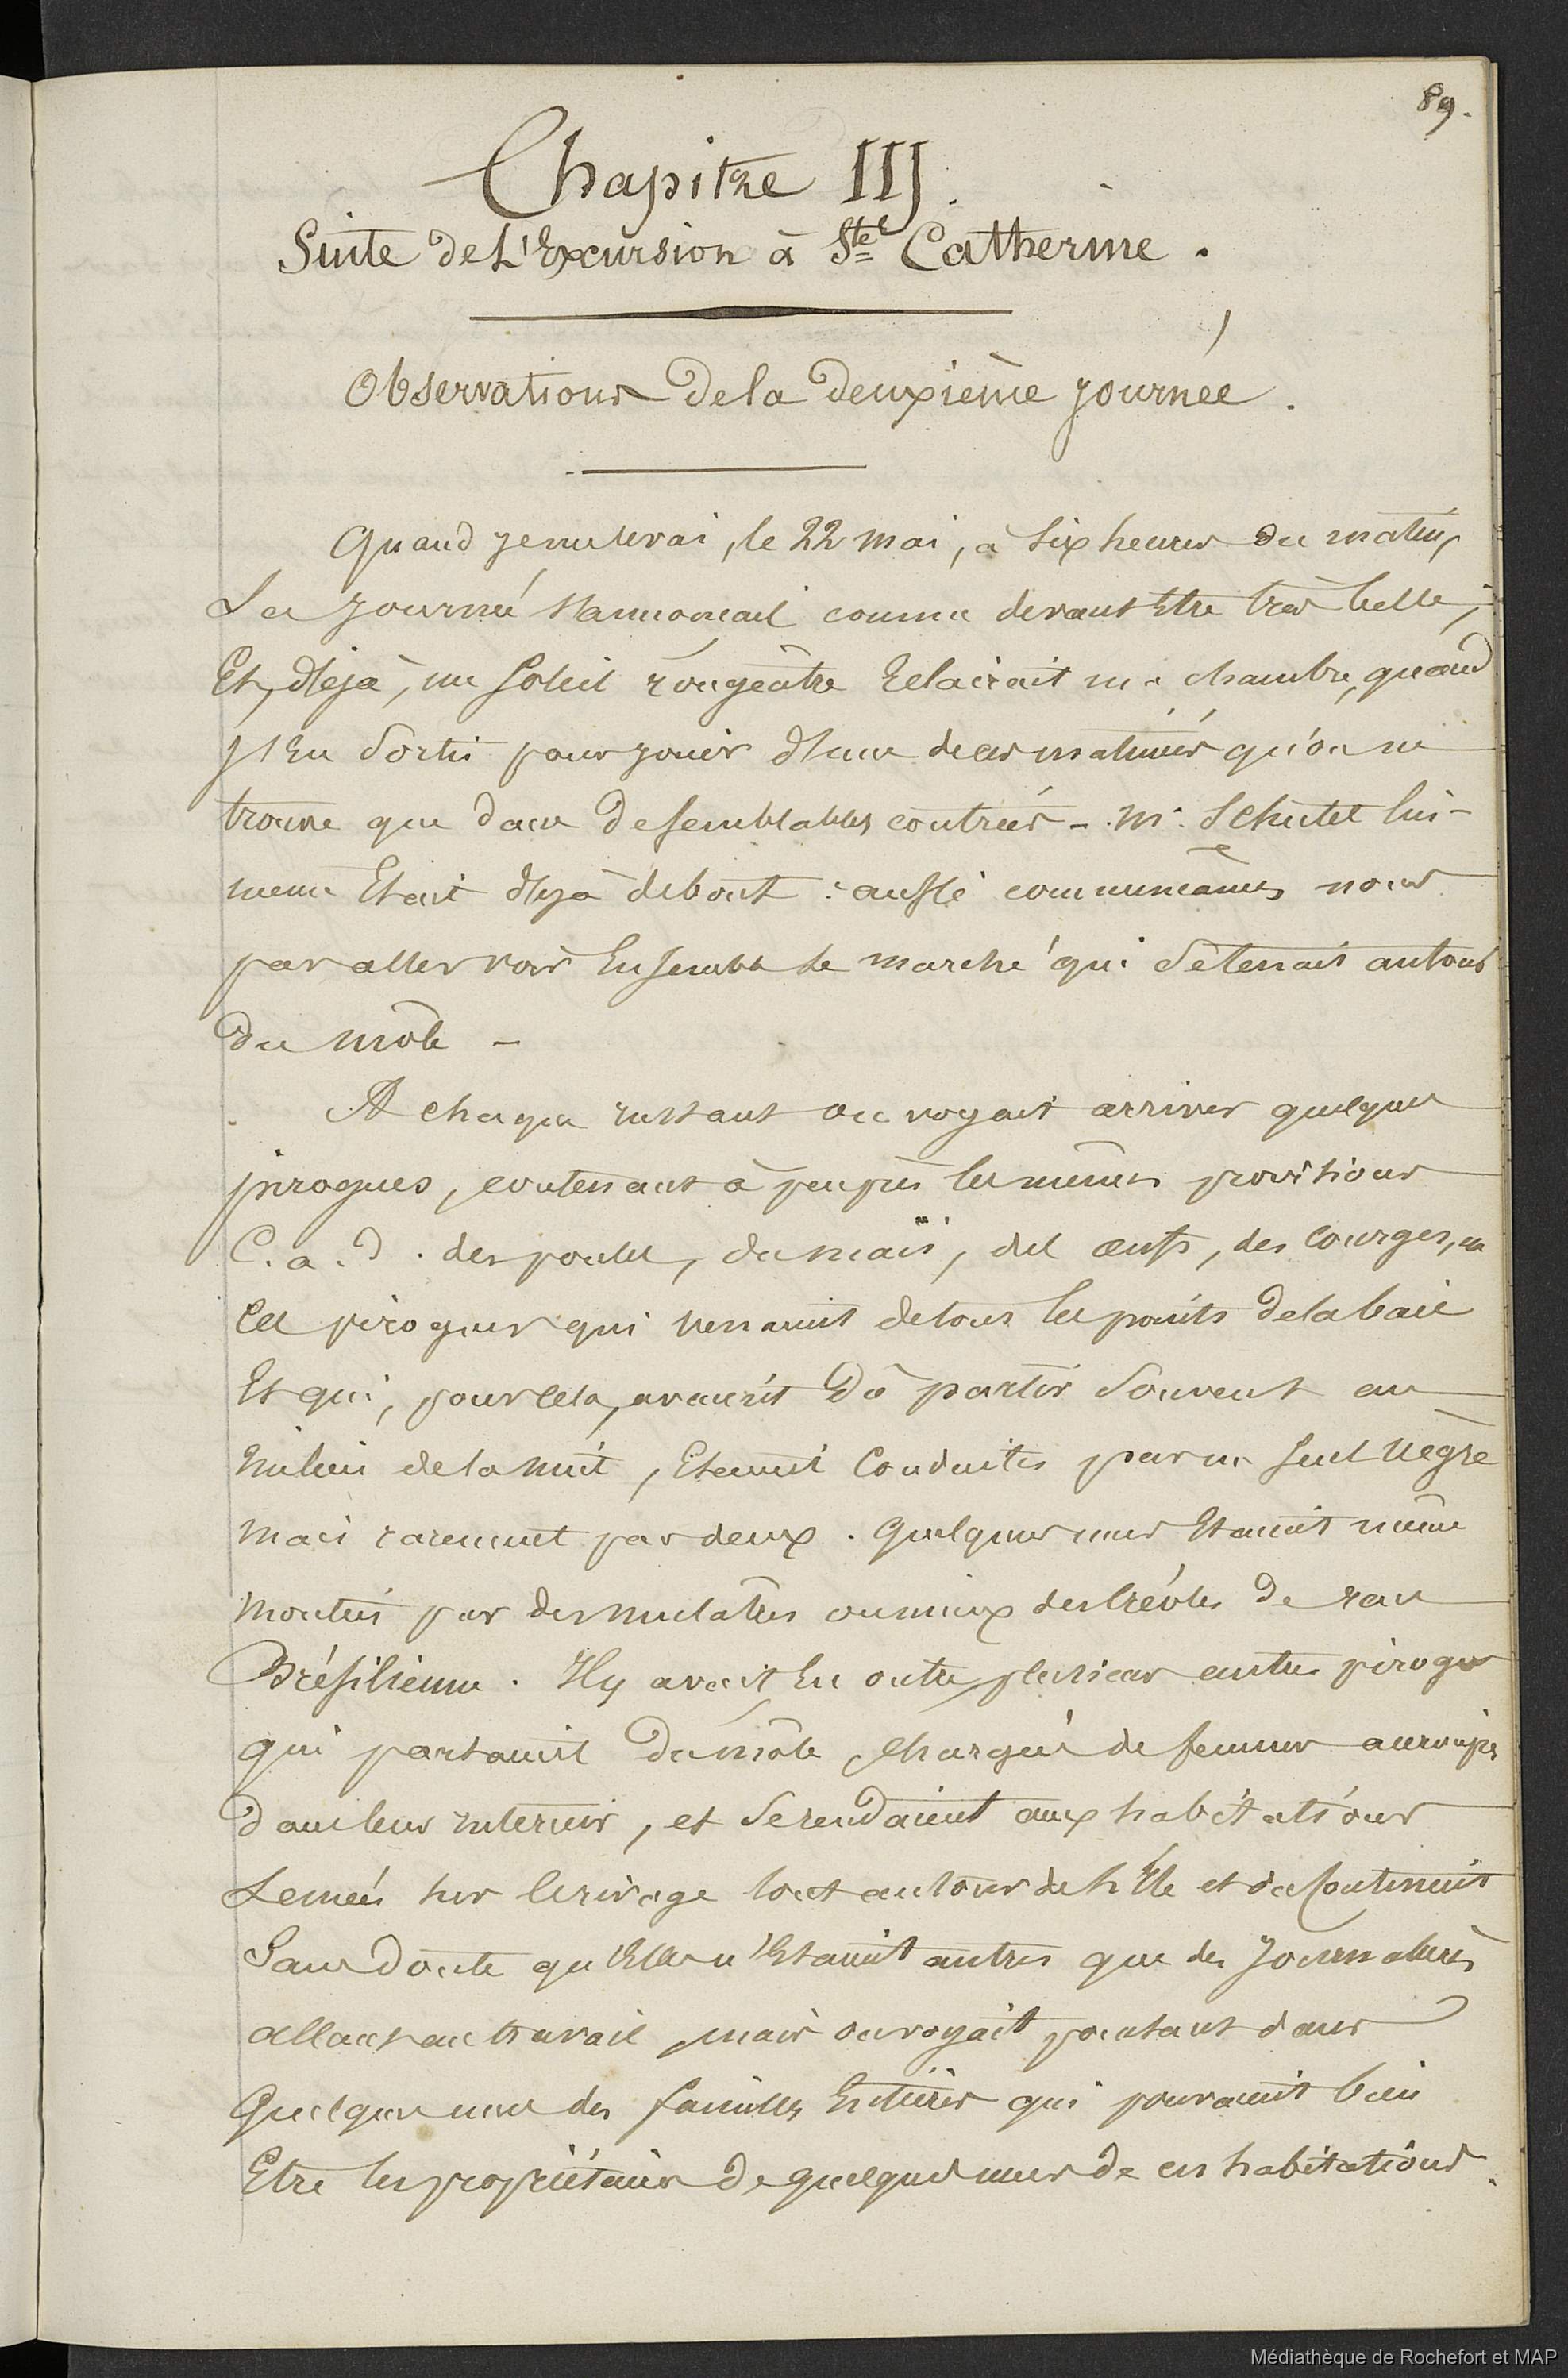 89.
Chapitre III.
Suite de L'Excursion à Ste Catherine.
Observations de la deuxième journée.
Quand je me levai, le 22 mai, à six heures du matin,
La journée s'annoncait comme devant être très belle;
Et, déjà, un soleil rougeâtre Eclairait ma chambre, quand
j'en sortis pour jouir d'une de ces matinées qu'on ne
trouve que dans de semblables contrées - Mr. Schutel lui-
meme Etait déjà debout : aussi commencâmes nous
par aller voir Ensemble le marché qui se tenait autour
du môle -
A chaque instant on voyait arriver quelques
pirogues, contenant à peu près les mêmes provisions
C. a. d. des poules, du maïs, des œufs, des courges,
Ces pirogues qui venaient de tous les points de la baie
Et qui, pour cela, avaient dû partir souvent au
milieu de la nuit, Etaient Conduites par un seul nègre
mais rarement par deux. Quelques unes Etaient même
montées par des mulâtres ou mieux des Créoles de race
Brésilienne. Il y avait En outre, plusieurs autres pirogues
qui partaient du môle, chargées de femmes accroupies
dans leur intérieur, et se rendaient aux habitations
semées sur le rivage tout autour de l'île et du Continent
Sans doute qu'Elles n'Etaient autres que des journalières
allant au travail, mais on voyait pourtant dans
Quelques unes des familles Entières qui pouvaient bien
Etre les propriétaires de quelques unes de ces habitations.
Médiathèque de Rochefort et MAP